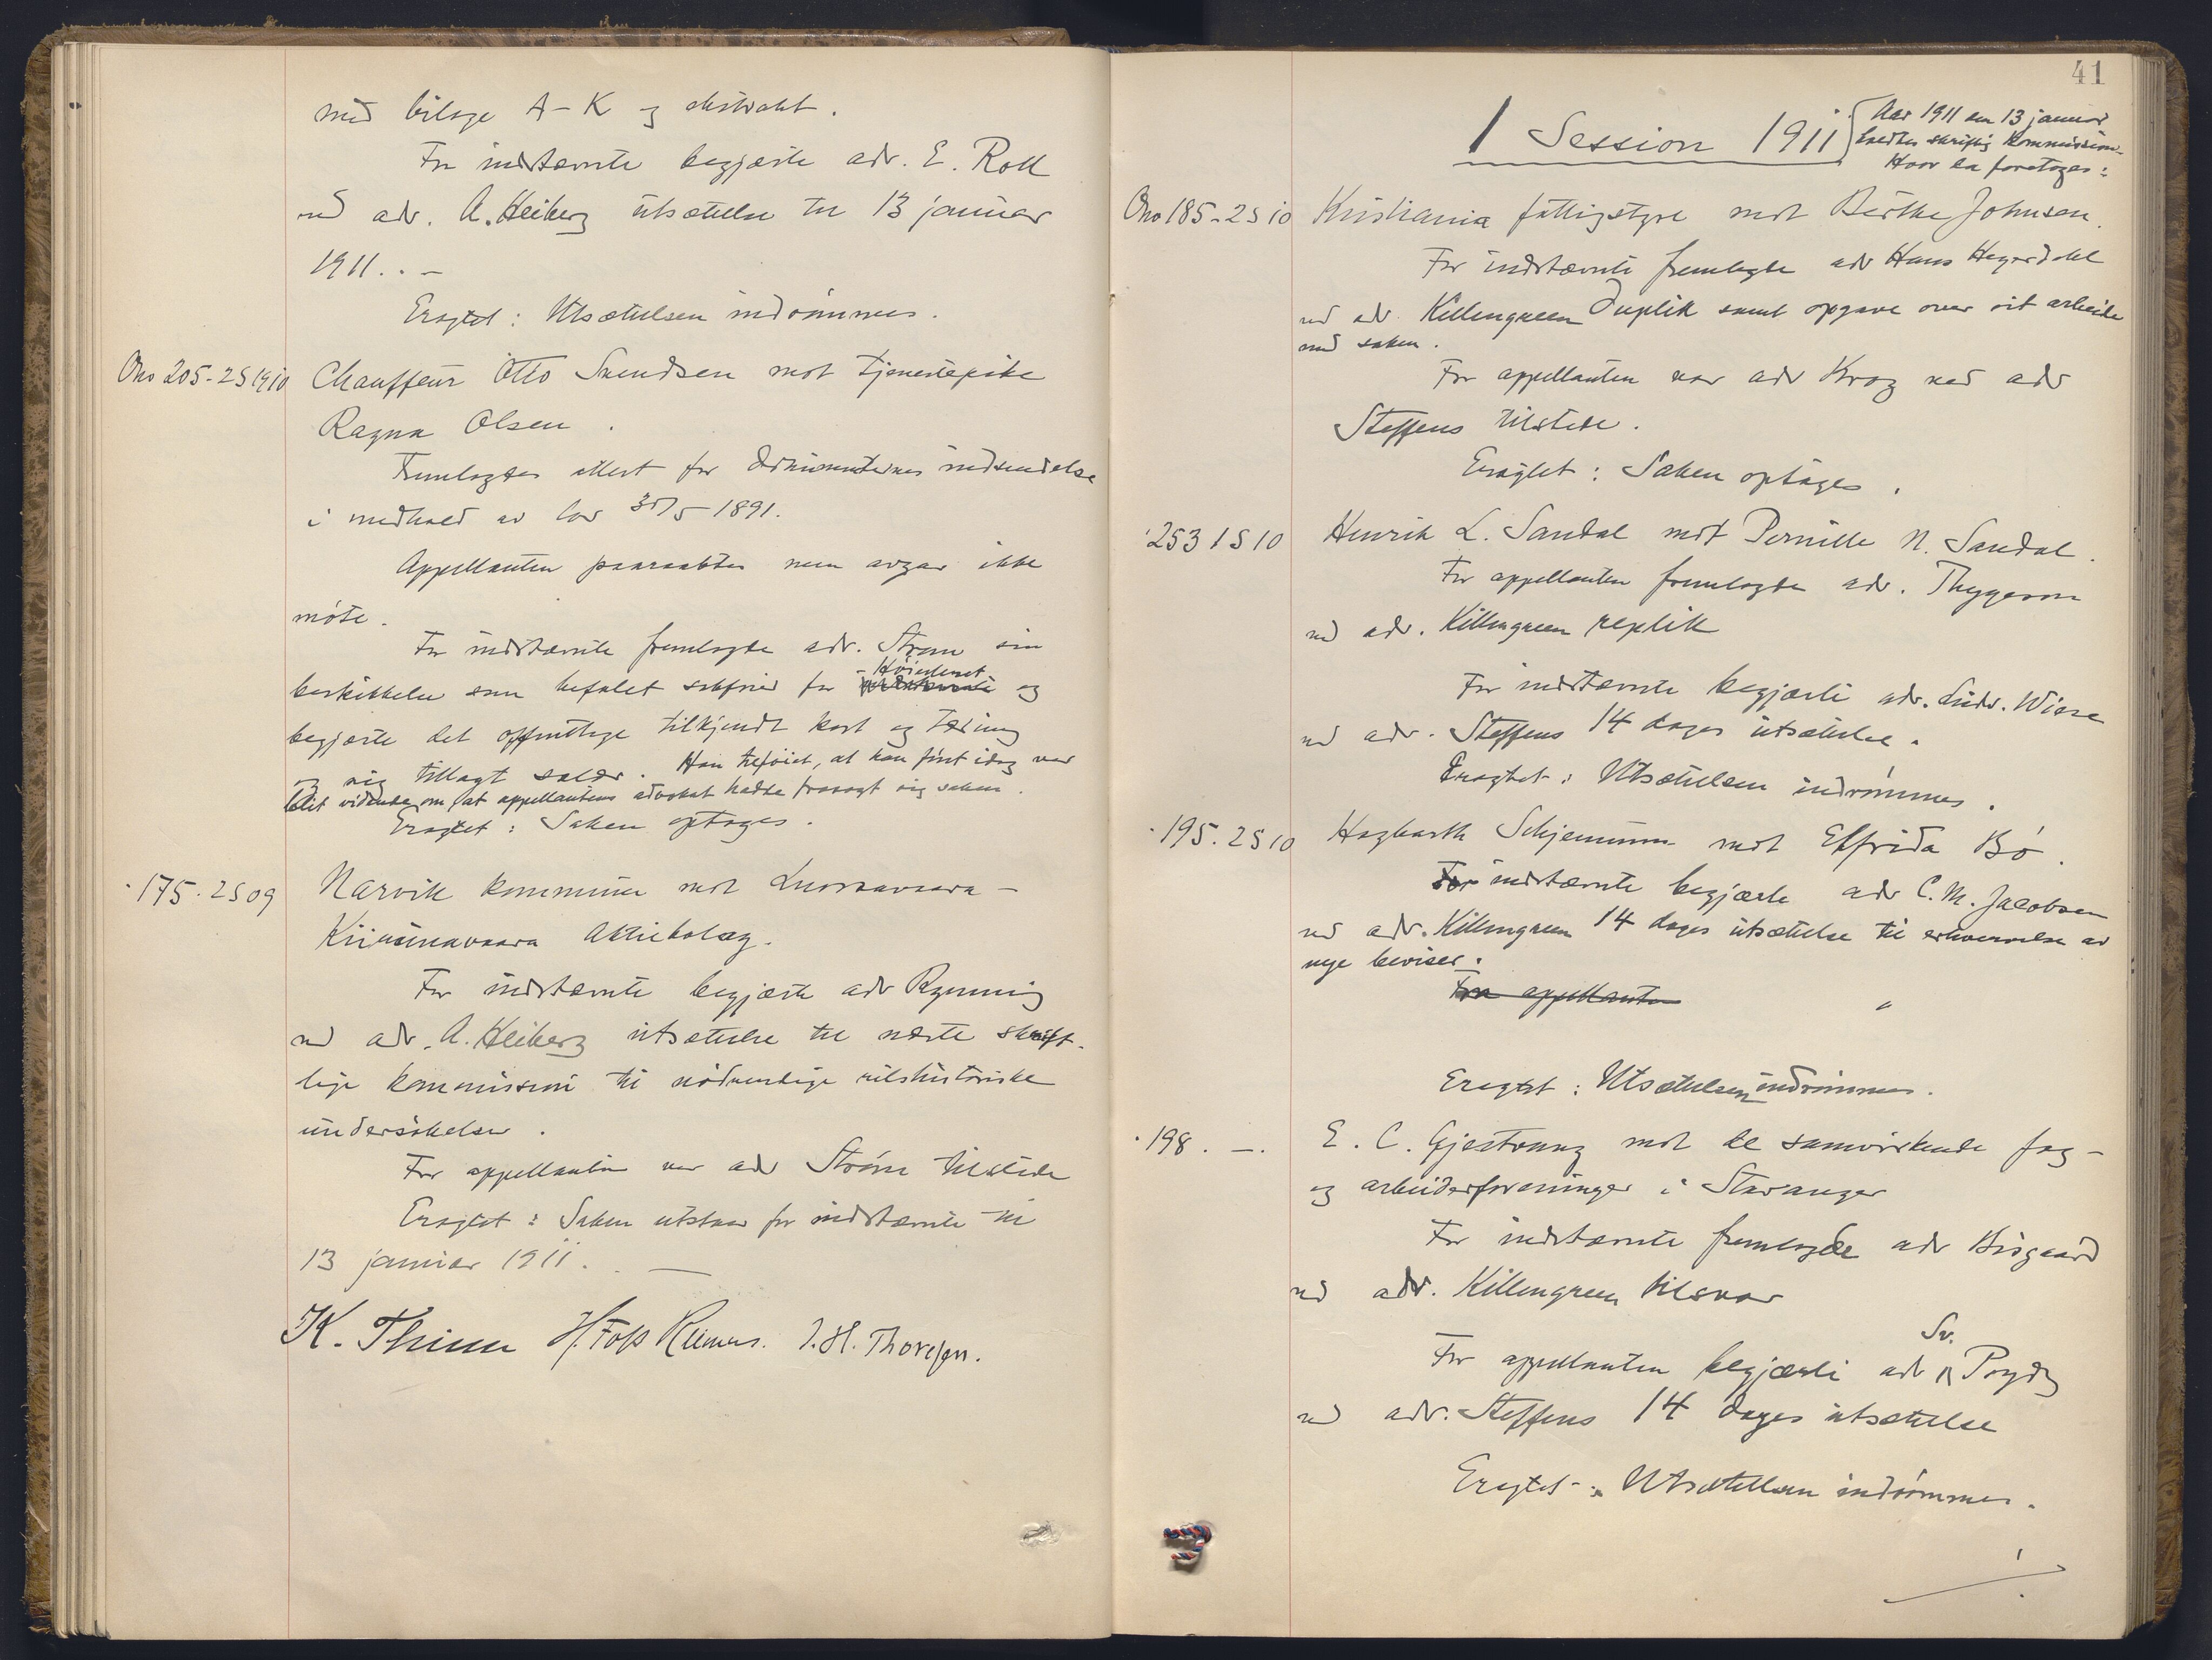 med bilage A-K og ekstrakt.
For indstævnte begjærte adv. E. Roll
ved adv. A. Heiberg utsættelse til 13 januar
1911. . —
Eragtet: Utsættelsen indrömmes.
Ono 205-2S1910 Chauffeur Otto Svendsen mot tjenestepike
Ragna Olsen.
Fremlagdes attest for dokumenternes indsendelse
i medhold av lov 30/5 1891.
Appellanten paaraabtes men avgav ikke
möte.
For indstævnte fremlagde adv. Strøm sin
- Höiesteret
beskikkelse som befalet sakförer for indstævnte og
begjærte det offentlige tilkjendt kost og tæring
og sig tillagt salær. Han tilföiet, at han först idag var
blit vidende om, at appellantens advokat hadde frasagt sig saken.
Eragtet: Saken optages.
175. 2S09 Narvik kommune mot Luossavaara-
Kiirunavaara Aktiebolag.
For indstævnte begjærte adv Rynning
ved adv. A. Heiberg utsættelse til næste skrift-
lige kommission til nödvendige retshistoriske
undersökelser.
For appellanten var adv Ström tilstede
Eragtet: Saken utstaar for indstævnte til
13 januar 1911. . —
K. Thinn H. Foss Reimers. J. H. Thoresen.
41
1 Session 1911
Aar 1911 den 13 januar
holdtes skriftlig Kommission.
Hvor da foretoges:
Ono 185-2S10 Kristiania fattigstyre mot Berthe Johnsen.
For indstævnte fremlagde adv Hans Hegerdahl
ved adv. Killengreen Duplik samt opgave over sit arbeide
med saken.
For appellanten var adv Krog ved adv
Steffens tilstede.
Eragtet: Saken optages.
253 1S10 Henrik L. Sandal mot Pernille N. Sandal.
For appellanten fremlagde adv. Thygeson
ved adv. Killengreen replik
For indstævnte begjærte adv. Ludv. Wiese
ved adv. Steffens 14 dages utsættelse.
Eragtet: Utsættelsen indrömmes.
195. 2S10 Hagbarth Schjemmen mot Elfrida Bö.
For indstævnte begjærte adv C. M. Jacobsen
ved adv. Killengreen 14 dages utsættelse til erhvervelse av
nye beviser.
For appellanten
Eragtet: Utsættelsen indrömmes.
198. —. E. C. Gjestvang mot de samvirkende fag-
og arbeiderforeninger i Stavanger
For indstævnte fremlagde adv Bisgaard
ved adv. Killengreen tilsvar
Sv.
For appellanten begjærte adv Prydz
ved adv. Steffens 14 dages utsættelse
Eragtet: Utsættelsen indrömmes.